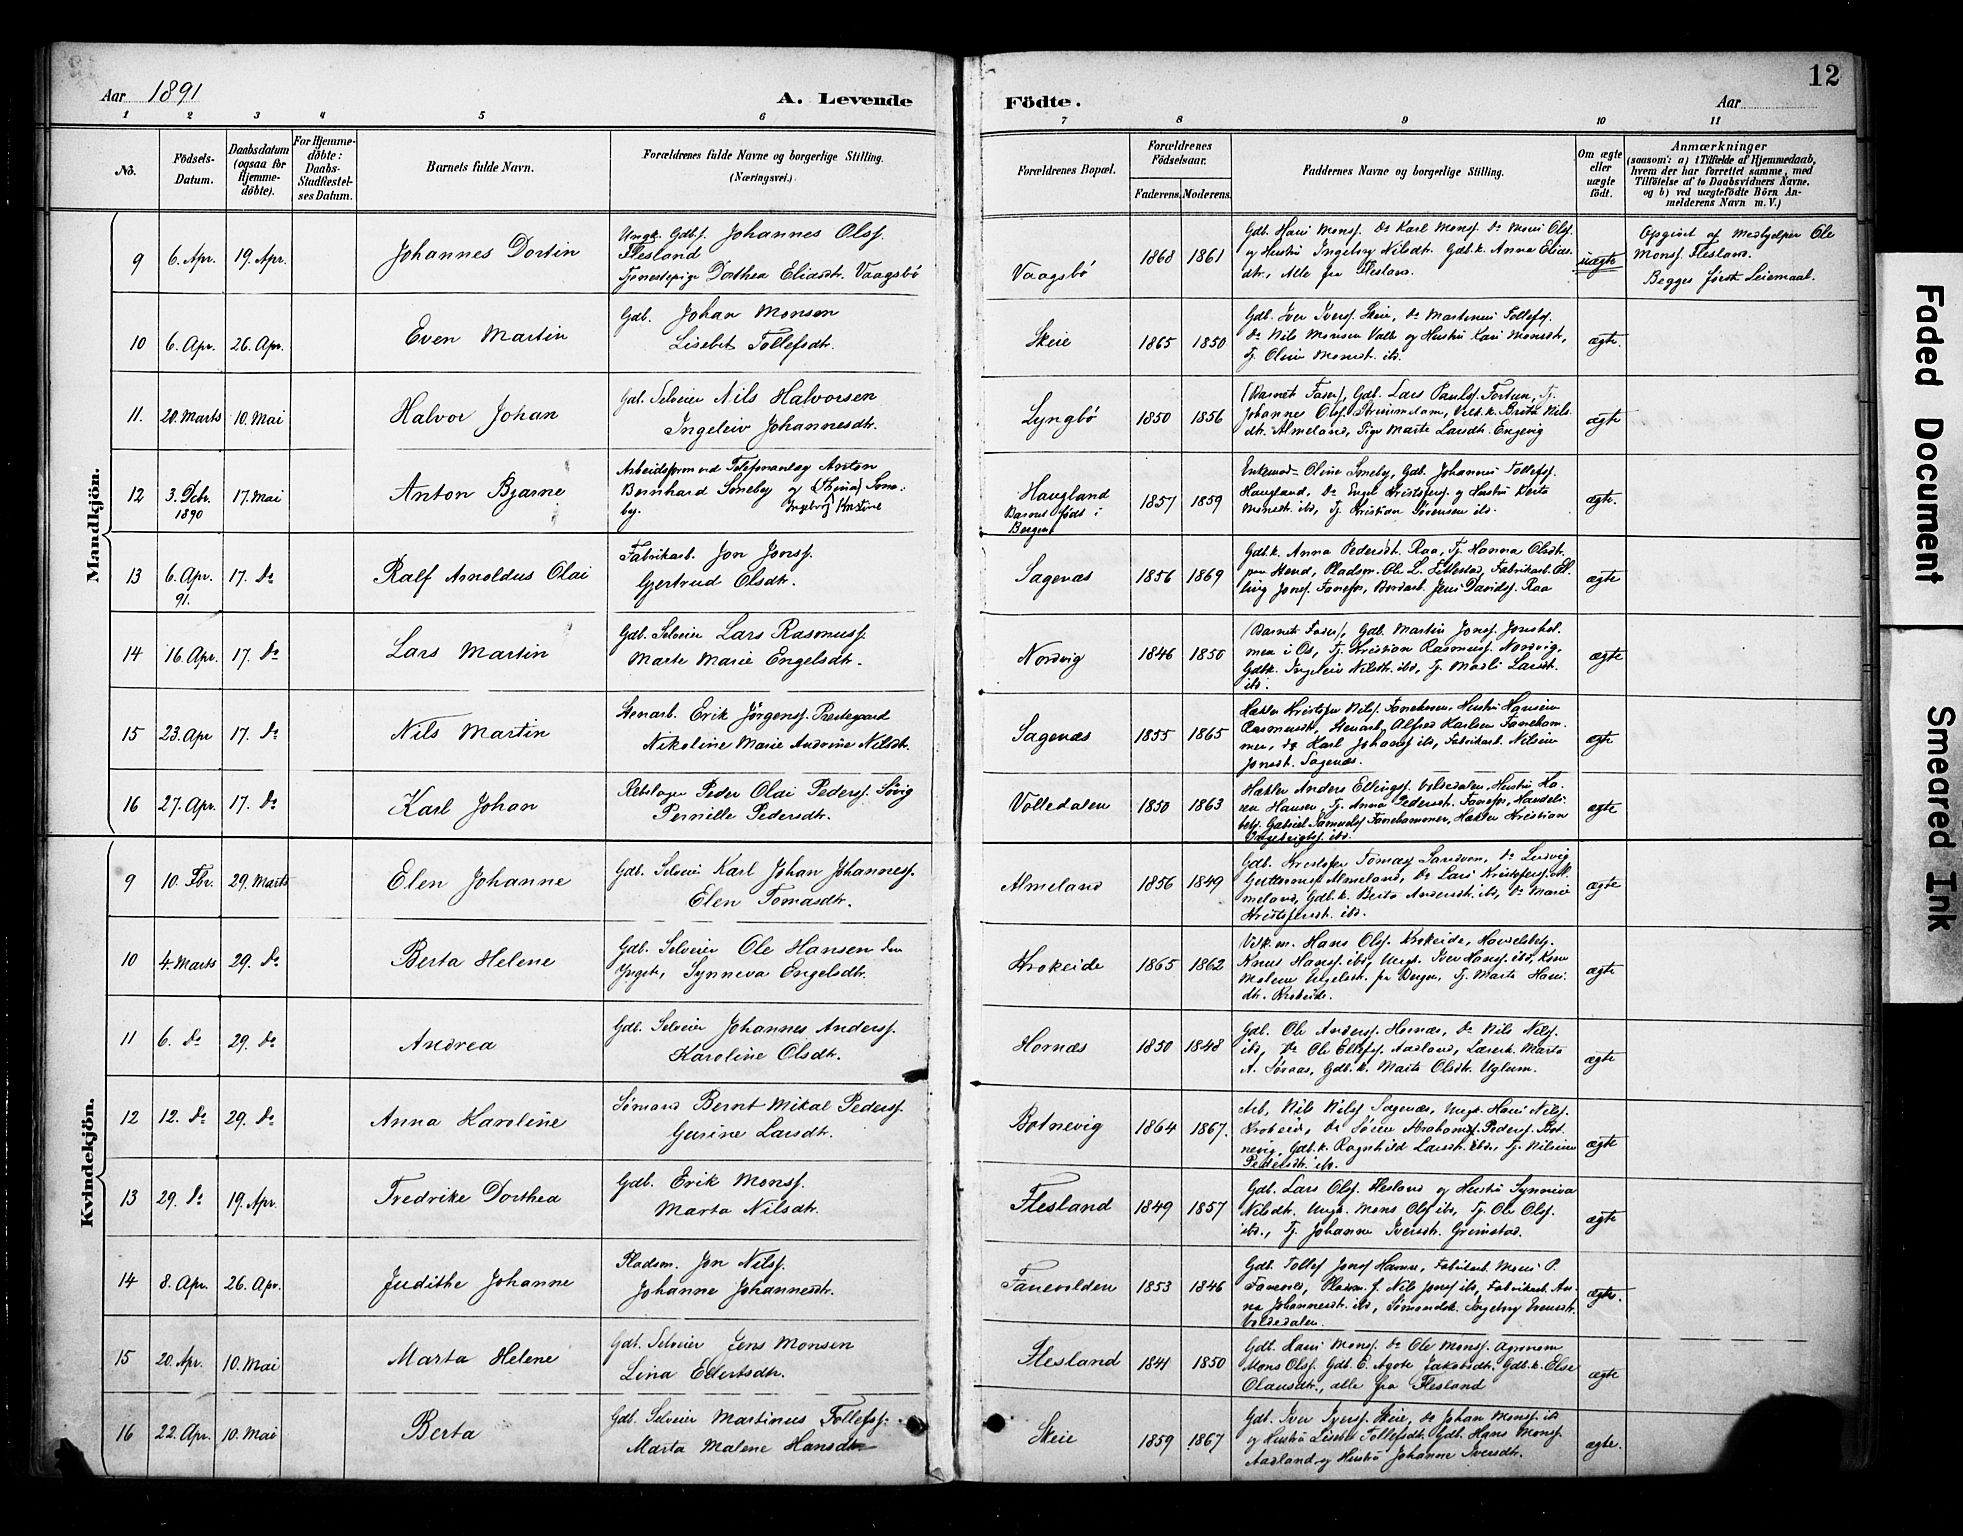 12
Aar 1891
A. Levende
Födte.
Aar
1 2 3 4 5 6 7 8 9 10 11
No.
Födsels-
Datum.
Daabsdatum
(ogsaa for
Hjemme-
döbte).
For Hjemme-
döbte:
Daabs-
Stadfæstel-
ses Datum.
Barnets fulde Navn.
Forældrenes fulde Navne og borgerlige Stilling.
(Næringsvei.)
Forældrenes Bopæl.
Forældrenes
Födselsaar.
Faderens. Moderens.
Faddernes Navne og borgerlige Stilling.
Om ægte
eller
uægte
födt.
Anmærkninger
(saasom: a) i Tilfælde af Hjemmedaab,
hvem der har forrettet samme, med
Tilföielse af to Daabsvidners Navne,
og b) ved uægtefödte Börn An-
melderens Navn m. V.)
Mandkjön.
9 6. Apr. 19. Apr. Johannes Dortin
Ungk. Gdbs. Johannes Olsf.
Flesland
Tjenestepige Dorthea Eliasdtr. Vaagsbø
Vaagsbø 1868 1861
Gdb. Hans Monsf. Do Karl Monsf. Do Mons Olsf.
og Hustru Ingeborg Nilsdtr. Gdb.k. Anna Elias-
dtr., Alle fra Flesland.
uægte
Opgivet af Medhjelper Ole
Monsf. Flesland.
Begges første Leiemaal.
10 6. Apr. 26. Apr. Even Martin
Gdb. Johan Monsen
Lisebet Tollefsdtr.
Skeie 1865 1850
Gdb. Iver Iversf. Skeie, Do Martinus Tollefsf.
Do Nils Monsen Valle og Hustru Kari Monsdtr,
Tj. Oline Monsdt. ibd.
ægte.
11. 20. Marts 10. Mai Halvor Johan
Gdb. Selveier Nils Halvorsen
Ingeleiv Johannesdtr.
Lyngbø 1850 1856
(Barnets Fader), Gdb. Lars Paulsf. Fortun, Tj.
Johannes Olsf. Straumdam, Velb.k. Brita Nils-
dtr. Almeland, Pige Marta Larsdtr. Engevig
ægte
12 3. Octr. 1890 17. Mai Anton Bjarne
Arbeidsform. ved Telefonanlæg Anton
Bernhard Smeby og (Hustru) Sme-
by. Ingeborg Kristine
Haugland
Barnet født i
Bergen
1857 1859
Enkemad. Oline Smeby, Gdb. Johannes Tollefsf.
Haugland, Do Engel Kristofersf. og Hustru Berta
Monsdtr. ibd, Tj. Kristian Sørensen ibd.
ægte.
13 6. Apr. 91. 17. Do Ralf Arnoldus Olai
Fabrikarb. Jon Jonsf.
Gjertrud Olsdtr.
Sagenæs 1856 1869
Gdb.k. Anna Pedersdt. Raa, Tj. Hanna Olsdt.
paa Stend, Pladsm. Ole L. Titlestad, Fabrikarb. El-
ling Jonsf. Fanefjer, Bordarb. Jens Davidsf. Raa
ægte
14 16. Apr. 17. Do Lars Martin
Gdb. Selveier Lars Rasmusf.
Marte Marie Engelsdtr.
Nordvig 1846 1850
(Barnets Fader), Gdb. Martin Jonsf. Joneshol-
men i Os, Tj. Kristian Rasmusf. Nordvig,
Gdb.k. Ingeleiv Nilsdtr. ibd, Tj. Marli Larsdt.
ibd.
ægte
15 23. Apr 17. Do Nils Martin
Stenarb. Erik Jørgensf. Prestegaard
Nikoline Marie Andrine Nilsdtr.
Sagenæs 1855 1865
Hekler Kristofer Nilsf. Fanehamn, Hustru Hansine
Rasmusdt, Stenarb. Alfred Karlsen Faneham-
mer, do Karl Johansf. ibd, Fabrikarb. Nilsine
Jonsdt. Sagenæs.
ægte
16 27. Apr. 17. Do Karl Johan
Rebslager Peder Olai Pedersf. Søvig
Pernille Pedersdtr.
Volledalen 1850 1863
Hekler Anders Ellingsf. Voldedalen, Hustru Ka-
ren Hansen, Tj. Anna Pedersdt. Fanefjer, Handels-
betj. Gabriel Samuelsf Fanehammer, Hekler Kristian
ibd.
ægte
Kvindekjön.
9 10. Fbr. 29. Marts Elen Johanne
Gdb. Selveier Karl Johan Johannesf.
Elen Tomasdtr.
Almeland 1856 1849
Gdb. Kristofer Tomasf Sandven, Do Ludvig
Guttormsf Almeland, Do Lars Kristofersf. Al-
meland, Gdb.k. Berta Andersdtr. ibd, Do Marie
Kristofersdt. ibd.
ægte
10 4. Marts 29. Do Berta Helene
Gdb. Selveier Ole Hansen den
Yngste, Synneva Engelsdtr.
Krokeide 1865 1862
Velk.m. Hans Olsf. Krokeide, Handelsbetj.
Knut Hansf. ibd, Ungk. Iver Hansf. ibd, Kone
Malene Engelsdt. fra Bergen, Tj. Marta Hans-
dtr. Krokeide.
ægte
11 6. Do 29. Do Andrea
Gdb. Selveier Johannes Andersf.
Karoline Olsdtr.
Hornæs 1850 1848
Gdb. Ole Andersf. Hornæs, Do Nils Nilsf.
ibd, Do Ole Ellefsf. Aadland, Lærerk. Marta
A. Søraas, Gdb.k. Marta Olsdtr. Uglum.
ægte
12 12. Do 29. Do Anna Karoline
Sømand Bernt Mikal Pedersf.
Gurine Larsdtr.
Botnevig 1864 1867.
Arb. Nils Nilsf Sagenæs, Ungk. Hans Nilsf.
Krokeid, Do Søren Abrahamsf. Pedersf. Bot-
nevig, Gdb.k. Ragnhild Larsdtr. ibd, Tj. Nilsine
Pedersdtr. ibd.
ægte
13 29. Do 19. Apr. Fredrike Dorthea
Gdb. Erik Monsf.
Marta Nilsdtr.
Flesland 1849 1857
Gdb. Lars Olsf. Flesland og Hustru Synneva
Nilsdtr. Ungk. Mons Olsf ibd, Tj. Ole Olsf.
ibd., Tj. Johanna Iversdt. Grimstad.
ægte
14 8. Apr. 26. Apr. Judithe Johanne
Pladsm. Jon Nilsf.
Johanne Johannesdtr.
Fanevolden 1853 1846
Gdb. Tollef Jonsf Hamre, Fabrikarb. Mons P.
Fanevol, Pladsm.s. Nils Jonsf ibd, Fabrikarb. An-
na Johannesdt. ibd, Sømandsk. Ingeborg Iversdt.
Voldedalen.
ægte.
15 20. Apr. 10. Mai Marta Helene
Gdb. Selveier Jens Monsen
Lina Edertsdtr.
Flesland 1841 1850
Gdb. Hans Monsf. Do Ole Monsf. Agronom
Mons Olsf. Gdb. E. Agote Jakobsdtr. Gdb.k. Else
Olausdtr., alle fra Flesland
ægte
16 22. Apr. 10. Mai Berta
Gdb. Selveier Martinus Tollefsf.
Marta Malene Hansdtr
Skeie 1859 1867
Gdb. Iver Iversf. Skeie, Do Johan Monsf. ibd
og Hustru Lisebet Tollefsdtr. Gdb. Hans Monsf.
Aadland og Hustru Johanne Iversdtr.
ægte.
Faded Document
Smeared Ink